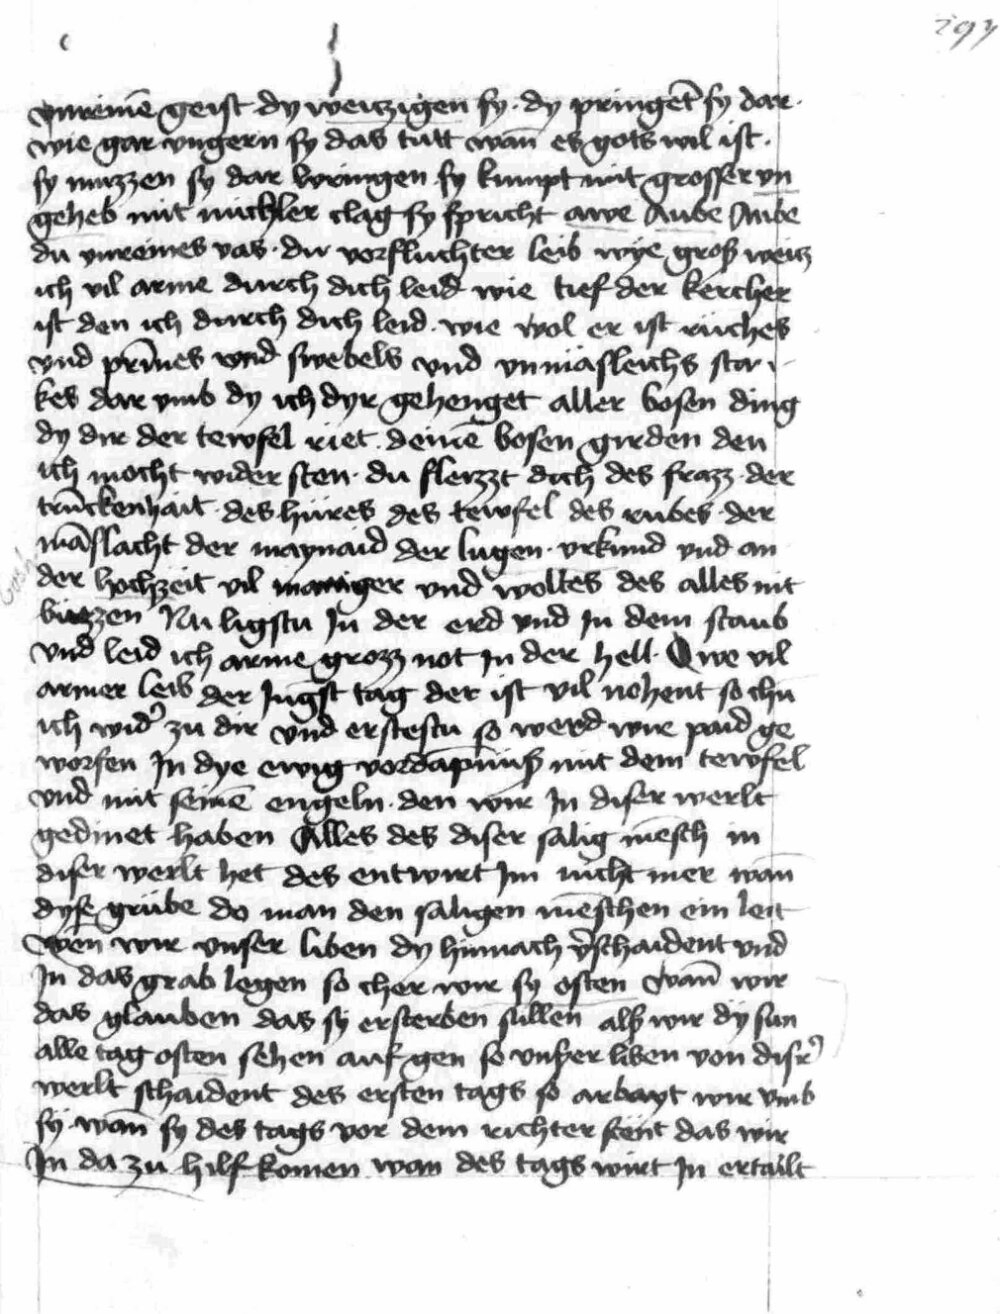 297
vnreinē geist dy weiczigen sy · dy pringēt sy dar ·
wie gar vngern sy das tutt wan̄ es gots wil ist ·
sy muzzen sy dar bringen sy kumpt mit grosser vn
geheb mit michler clag sy spricht awe Aube Aube
du vnreines vas · du vorfluchter leib wye groß weicz
ich vil arme durch dich leid wie tief der kercher
ist den ich durch dich leid · wie wol er ist rüches
vnd prīnes vnd swebels vnd vnmasleichs star
kes dar vmb dy ich dyr gehenget aller bosen ding
dy dir der tewfel riet · deinē bosen girden den
ich mocht wider sten · du flizzt dich des frazz · der
trūckenhait · des hüres des tewfel des rubes · der
māslacht der maynaid der lugen · vrkund vnd an
der hochzeit vil maniger vnd woltes des alles nit
büzzen Nu ligstu In der erd vnd In dem staub
vnd leid ich arme grozz not In der hell · Owe vil
armer leib der Jungst tag der ist vil nohent so chu
ich wid' zu dir vnd erstestu so werd wir paid ge
worfen In dye ewig vordāpnuß mit dem tewfel
vnd mit seinē engeln · den wir In diser werlt
gedinet haben Alles des diser salig mēsch in
diser werlt het des entwirt Im nicht mer wan̄
dyse grübe do man den saligen mēschen ein leit
Wen wir vnser liben dy hinnach v'schaident vnd
In das grab legen so cher wir sy osten wan̄ wir
das glauben das sy ersterben sullen alß wir dy sun
alle tag osten sehen auf gen so vnßer liben von disr'
werlt schaident des ersten tags so arbayt wir vmb
sy · wan̄ sy des tags vor dem richter stent das wir
In da zu hilf komen wan des tags wirt In ertailt